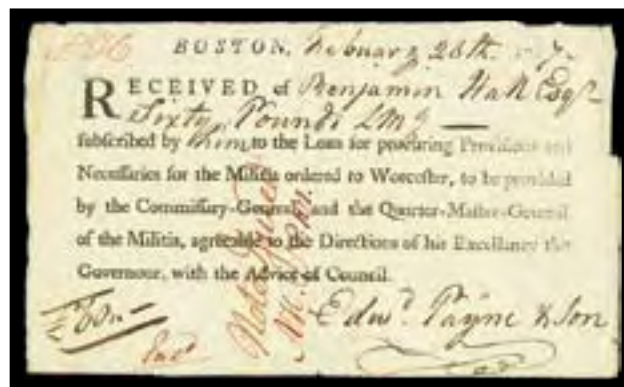 BOSTON, February 28th. 17
RECEIVED of Benjamin Hall Esqr.
Sixty Pounds LMy
subscribed by him, to the Loan for procuring Provisions and
Necessaries for the Militia ordered to Worcester, to be provided
by the Commissary-General, and the Quarter-Master-General
of the Militia, agreeable to the Directions of his Excellency the
Governour, with the Advice of Council.
£60
Edwd. Payne & Son
Note Issued